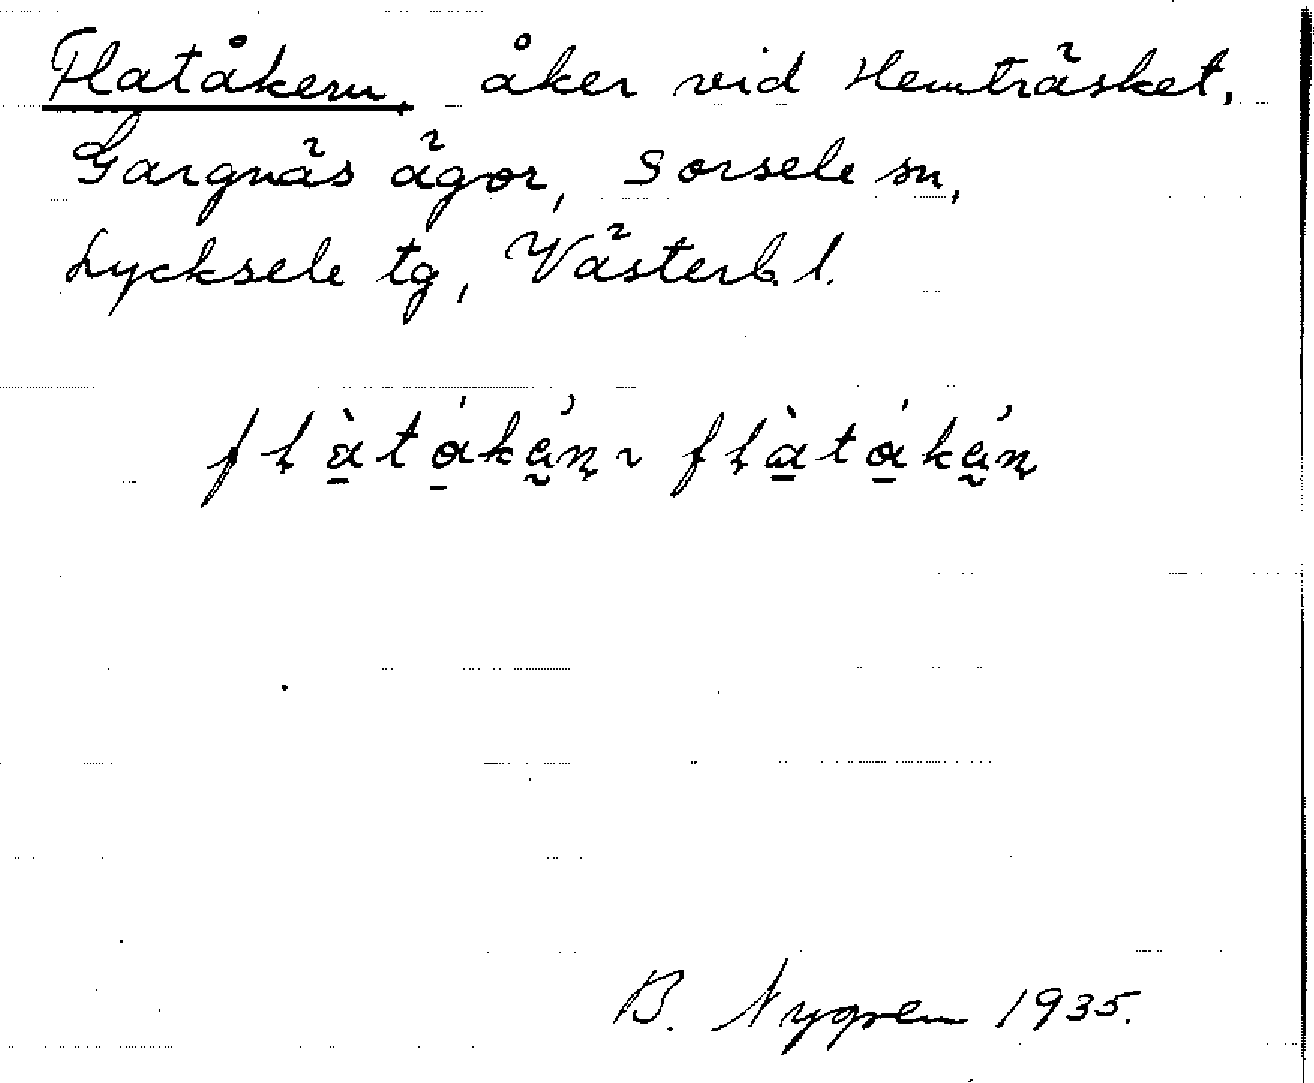 Flatåkern, åker vid Hemträsket,
Gargnäs ägor, Sorsele sn,
Lycksele tg, Västerb. l.
B. Nygren 1935.